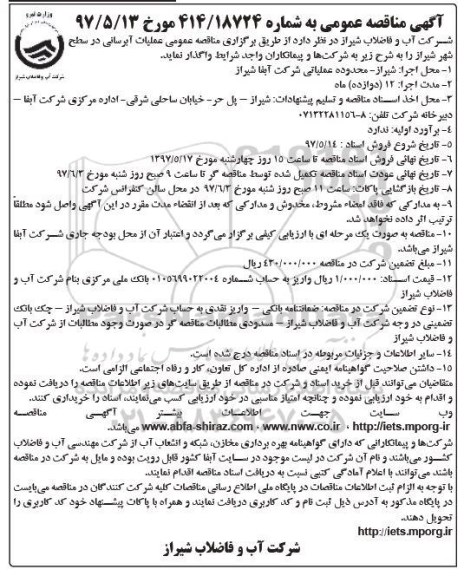 آگهی مناقصه عمومی به شماره ۴۱۴/۱۸۷۲۴ مورخ ۹۷/۵/۱۳
وزارت نیرو
شرکت آب و فاضلاب شیراز
شـرکت آب و فاضلاب شیراز در نظر دارد از طریق برگزاری مناقصه عمومی عملیات آبرسانی در سطح
شهر شیراز را به شرح زیر به شرکت‌ها و پیمانکاران واجد شرایط واگذار نماید.
۱- محل اجرا: شیراز- محدوده عملیاتی شرکت آبفا شیراز
۲- مدت اجرا: ۱۲ (دوازده) ماه
۳- محل اخذ اسـناد مناقصه و تسلیم پیشنهادات: شیراز – پل حر- خیابان ساحلی شرقی- اداره مرکزی شرکت آبفا –
دبیرخانه شرکت تلفن: ۸-۰۷۱۳۲۲۸۱۱۵۶
۴- برآورد اولیه: ندارد
۵- تاریخ شروع فروش اسناد : ۹۷/۵/۱۴
۶- تاریخ نهائی فروش اسناد مناقصه تا ساعت ۱۵ روز چهارشنبه مورخ ۱۳۹۷/۵/۱۷
۷- تاریخ نهائی عودت اسناد مناقصه تکمیل شده توسط مناقصه گر تا ساعت ۹ صبح روز شنبه مورخ ۹۷/۶/۳
۸- تاریخ بازگشائی پاکات: ساعت ۱۱ صبح روز شنبه مورخ ۹۷/۶/۳ در محل سالن کنفرانس شرکت
۹- به مدارکی که فاقد امضاء مشروط، مخدوش و مدارکی که بعد از انقضاء مدت مقرر در این آگهی واصل شود مطلقاً
ترتیب اثر داده نخواهد شد.
۱۰- مناقصه به صورت یک مرحله ای با ارزیابی کیفی برگزار می‌گردد و اعتبار آن از محل بودجه جاری شرکت آبفا
شیراز می‌باشد.
۱۱- مبلغ تضمین شرکت در مناقصه ۴۳۰/۰۰۰/۰۰۰ ریال
۱۲- قیمت اسـناد: ۱/۰۰۰/۰۰۰ ریال واریز به حساب شـماره ۰۱۰۵۶۹۹۰۲۲۰۰۴ بانک ملی مرکزی بنام شرکت آب و
فاضلاب شیراز
۱۳- نوع تضمین شرکت در مناقصه: ضمانتنامه بانکی – واریز نقدی به حساب شرکت آب و فاضلاب شیراز – چک بانک
تضمینی در وجه شرکت آب و فاضلاب شیراز – مسدودی مطالبات مناقصه گر در صورت وجود مطالبات از شرکت آب
و فاضلاب شیراز
۱۴- سایر اطلاعات و جزئیات مربوطه در اسناد مناقصه درج شده است.
۱۵- داشتن صلاحیت گواهینامه ایمنی صادره از اداره کل تعاون، کار و رفاه اجتماعی الزامی است.
متقاضیان می‌توانند قبل از خرید اسناد و شرکت در مناقصه از طریق سایت‌های زیر اطلاعات مناقصه را دریافت نموده
و اقدام به خود ارزیابی نموده و چنانچه امتیاز مناسبی در خود ارزیابی کسب می‌نمایند، اسناد را خریداری کنند.
وب سایت جهت اطلاعات بیشتر آگهی مناقصه
http://iets.mporg.ir ، www.nww.co.ir ، www.abfa-shiraz.com می‌باشد.
شرکت‌ها و پیمانکارانی که دارای گواهینامه بهره برداری مخازن، شبکه و انشعاب آب از شرکت مهندسی آب و فاضلاب
کشور می‌باشند و نام آن شرکت در لیست موجود در سایت آبفا کشور قابل رویت بوده و مایل به شرکت در مناقصه
باشند می‌توانند با اعلام آمادگی کتبی نسبت به دریافت اسناد مناقصه اقدام نمایند.
با توجه به الزام ثبت اطلاعات مناقصات در پایگاه ملی اطلاع رسانی مناقصات کلیه شرکت کنندگان در مناقصه می‌بایست
در پایگاه مذکور به آدرس ذیل ثبت نام و کد کاربری دریافت نمایند و همراه با پاکات پیشنهاد خود کد کاربری را
تحویل دهند.
http://iets.mporg.ir
شرکت آب و فاضلاب شیراز